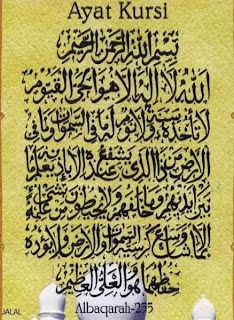 Ayat Kursi
بسم الله الرحمن الرحيم
الله لا إله إلا هو الحي القيوم
لا تأخذه سنة ولا نوم له ما في السموات وما في
الأرض من ذا الذي يشفع عنده إلا بإذنه يعلم ما
بين أيديهم وما خلفهم ولا يحيطون بشيء من علمه
إلا بما شاء وسع كرسيه السموات والأرض ولا يؤده
حفظهما وهو العلي العظيم
Albaqarah-255
JALAL